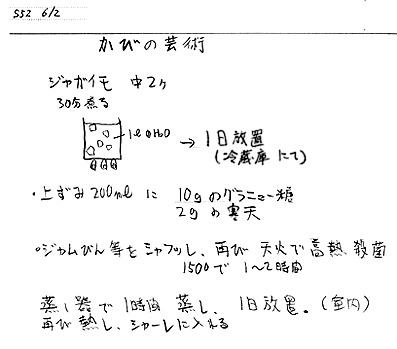 S52 6/2
かびの芸術
ジャガイモ 中2ヶ
30分煮る
1ℓのH2O → 1日放置
(冷蔵庫にて)
・上ずみ200mlに 10gのグラニュー糖
2gの寒天
・ジャムびん等をシャフツし、再び天火で高熱殺菌
150°で 1〜2時間
蒸し器で1時間蒸し、1日放置。(室内)
再び熱し、シャーレに入れる